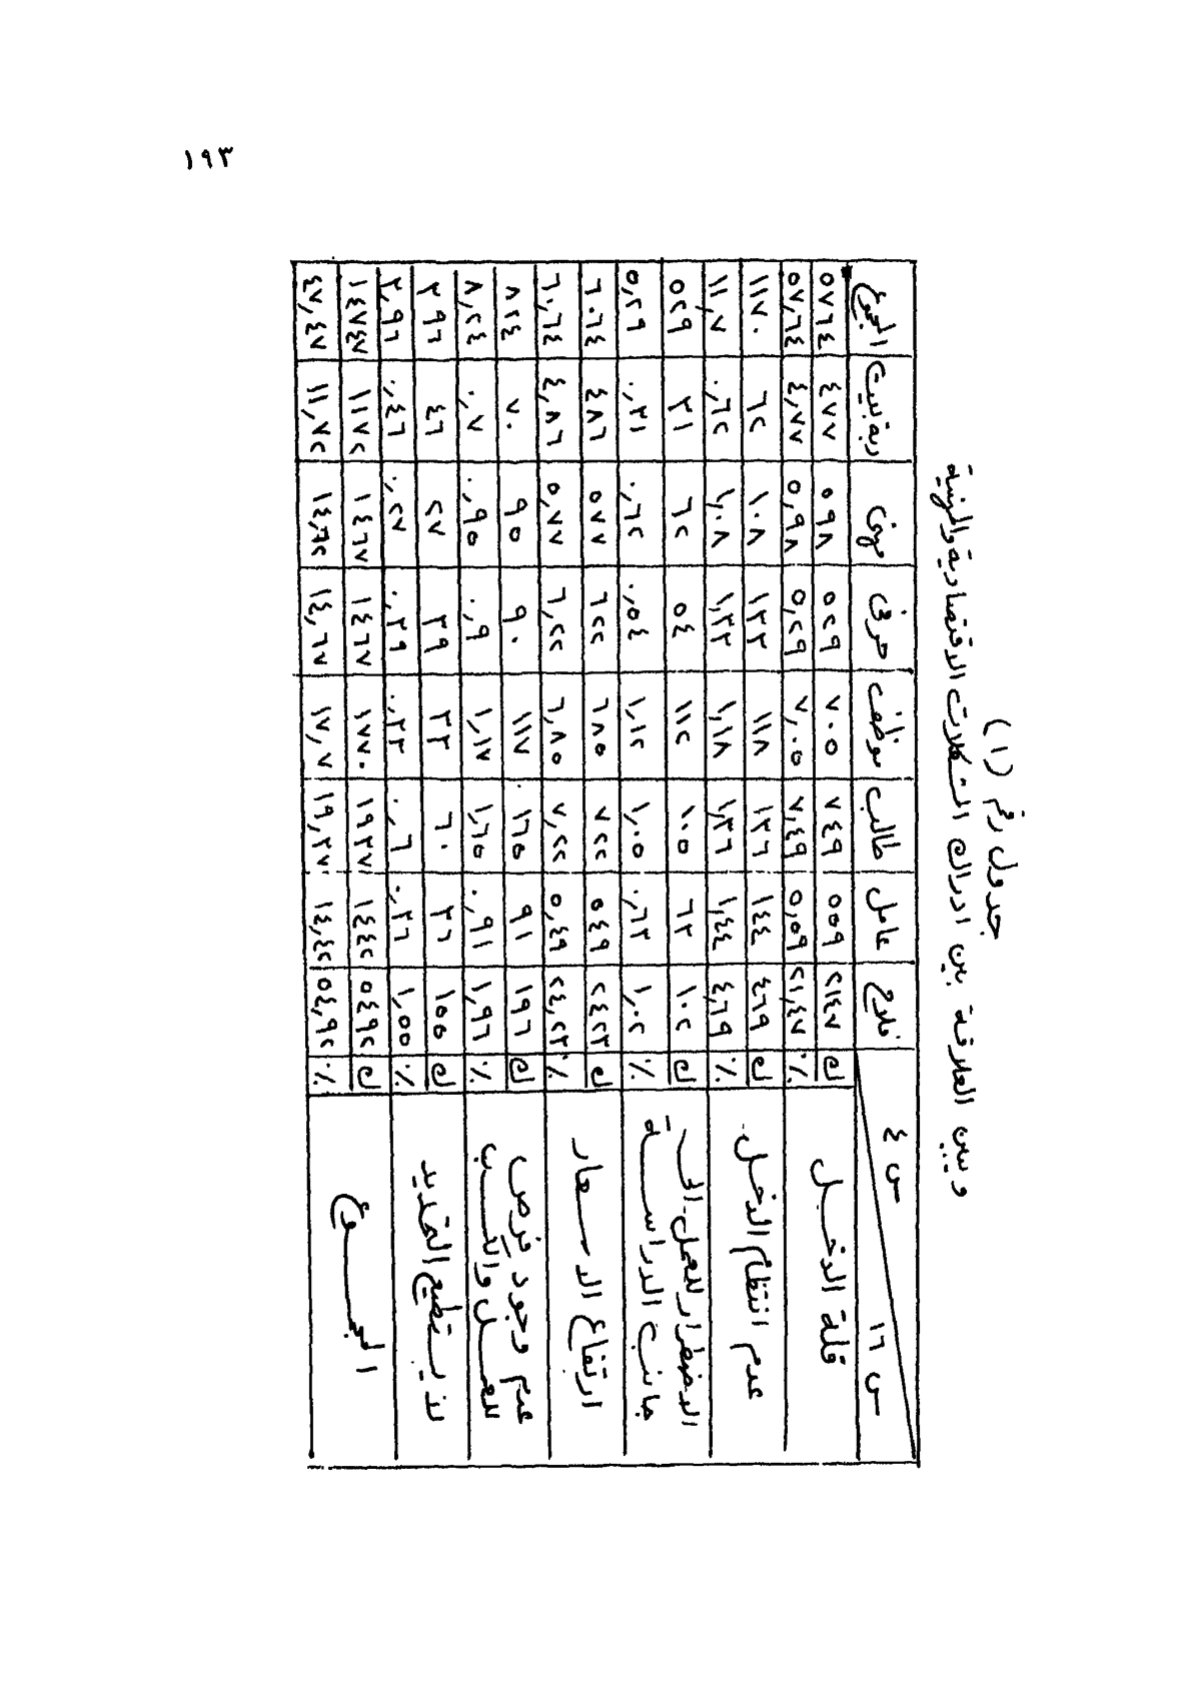 ١٩٣
جدول رقم (١)
ويبين العلاقة بين ادراك المشكلات الاقتصادية والمهنية
س ١٦ س ٤ فلاح عامل طالب موظف حرفى مهنى ربة بيت المجموع
قلة الدخل ك ٢١٤٧ ٥٥٩ ٧٤٩ ٧٠٥ ٥٢٩ ٥٩٨ ٤٧٧ ٥٧٦٤
٪ ٢١,٤٧ ٥,٥٩ ٧,٤٩ ٧,٠٥ ٥,٢٩ ٥,٩٨ ٤,٧٧ ٥٧,٦٤
عدم انتظام الدخل ك ٤٦٩ ١٤٤ ١٣٦ ١١٨ ١٣٣ ١٠٨ ٦٢ ١١٧٠
٪ ٤,٦٩ ١,٤٤ ١,٣٦ ١,١٨ ١,٣٣ ١,٠٨ ٠,٦٢ ١١,٧
الاضطرار للعمل الى ك ١٠٢ ٦٣ ١٠٥ ١١٢ ٥٤ ٦٢ ٣١ ٥٢٩
جانب الدراسة ٪ ١,٠٢ ٠,٦٣ ١,٠٥ ١,١٢ ٠,٥٤ ٠,٦٢ ٠,٣١ ٥,٢٩
ارتفاع الاسعار ك ٢٤٢٣ ٥٤٩ ٧٢٢ ٦٨٥ ٦٢٢ ٥٧٧ ٤٨٦ ٦٠٦٤
٪ ٢٤,٢٣ ٥,٤٩ ٧,٢٢ ٦,٨٥ ٦,٢٢ ٥,٧٧ ٤,٨٦ ٦٠,٦٤
عدم وجود فرص ك ١٩٦ ٩١ ١٦٥ ١١٧ ٩٠ ٩٥ ٧٠ ٨٢٤
للعمل والكسب ٪ ١,٩٦ ٠,٩١ ١,٦٥ ١,١٧ ٠,٩ ٠,٩٥ ٠,٧ ٨,٢٤
لا يستطيع التحديد ك ١٥٥ ٣٦ ٦٠ ٣٣ ٣٩ ٢٧ ٤٦ ٣٩٦
٪ ١,٥٥ ٠,٣٦ ٠,٦ ٠,٣٣ ٠,٣٩ ٠,٢٧ ٠,٤٦ ٣,٩٦
المجموع ك ٥٤٩٢ ١٤٤٢ ١٩٣٧ ١٧٧٠ ١٤٦٧ ١٤٦٧ ١١٧٢ ١٤٧٤٧
٪ ٥٤,٩٢ ١٤,٤٢ ١٩,٣٧ ١٧,٠٧ ١٤,٦٧ ١٤,٦٢ ١١,٧٢ ٤٧,٤٧